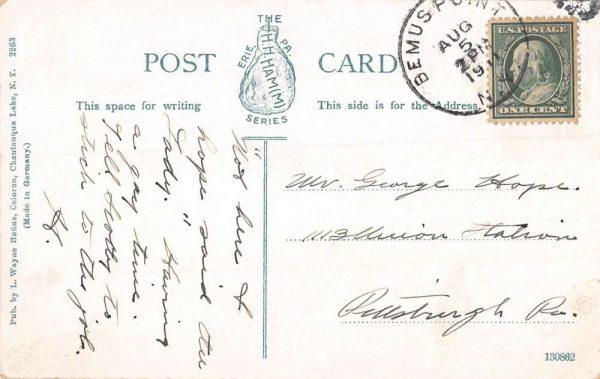 THE
H.H.HAMM
ERIE, PA.
SERIES
POST CARD
This space for writing
This side is for the Address.
BEMUS POINT
AUG
5
2 PM
1911
N.Y.
U.S. POSTAGE
ONE CENT
"Not here I
hope said the
lady." Having
a gay time.
Tell Scotty to
stick to the job.
H.
Mr. George Hope.
1113 Union Station
Pittsburgh Pa.
Pub. by L. Wayne Hodus, Celoron, Chautauqua Lake, N. Y. 2263
(Made in Germany.)
130862